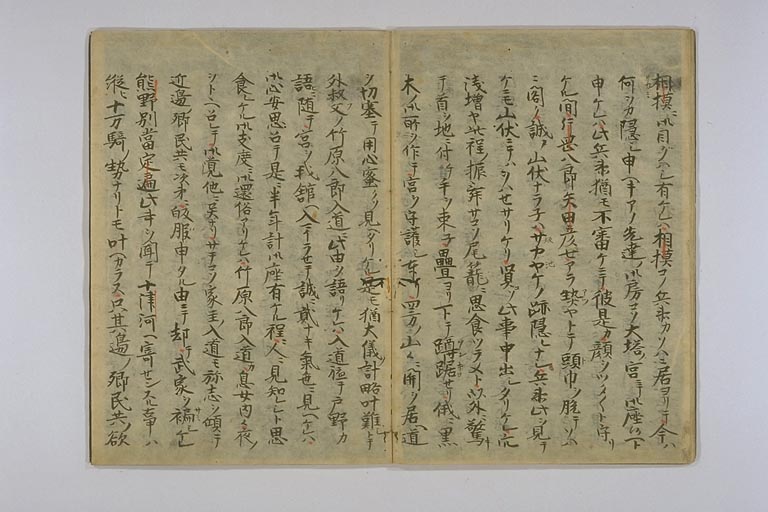 相模ニ御目クハシ有ケレハ相模コノ兵衛カソハニ居ヨリテ今ハ
何ヲカ隠シ申ヘキアノ先達ノ御房コソ大塔ノ宮ニテ御座候ヘト
申ケレハ此兵衛猶モ不審ケニテ彼是ノ顔ヲツク〱ト守リ
ケル間片岡八郎矢田彦七アラ熱ヤトテ頭巾ヲ脱テソハ
ニ閣ク誠ノ山伏ナラネハサカヤケノ跡隠レナシ兵衛此ヲ見テ
ケニモ山伏ニテハヲハセサリケリ賢ソ此事申出シタリケル穴
浅増ヤ此程ノ振舞サコソ尾籠ニ思食ツラメト以外驚
テ首ヲ地ニ付ケ手ヲ束子畳ヨリ下テ蹲踞セリ俄ニ黒
木ノ御所ヲ作テ宮ヲ守護シ奉リ四方ノ山々ニ関ヲ居ヘ道
ヲ切塞テ用心蜜シクソ見ヘタリケル是モ猶大儀ノ計略叶難トテ
外叔父ノ竹原八郎入道ニ此由ヲ語リケレハ入道軈テ戸野カ
語ニ随テ宮ヲ我舘ヘ入レマイラセテ誠ニ貳ナキ氣色ニ見ヘケレハ
御心安思召テ是ニ半年計御座有ケル程ニ人ニ見知レシト思
食レケル御支度ニ御還俗アリケレハ竹原八郎入道カ息女内々夜ノ
ヲトヽヘ召レテ御覚他ニ異ナリサテコソ家主入道モ弥志ヲ傾テ
近邊郷民共モ次第ニ皈服申タル由ニテ却テ武家ヲ褊シケレ
熊野別當定遍此事ヲ聞テ十津河ヘ寄センスル事ハ
縦ヒ十万騎ノ勢ナリトモ叶ヘカラス只其邊ノ郷民共ノ欲